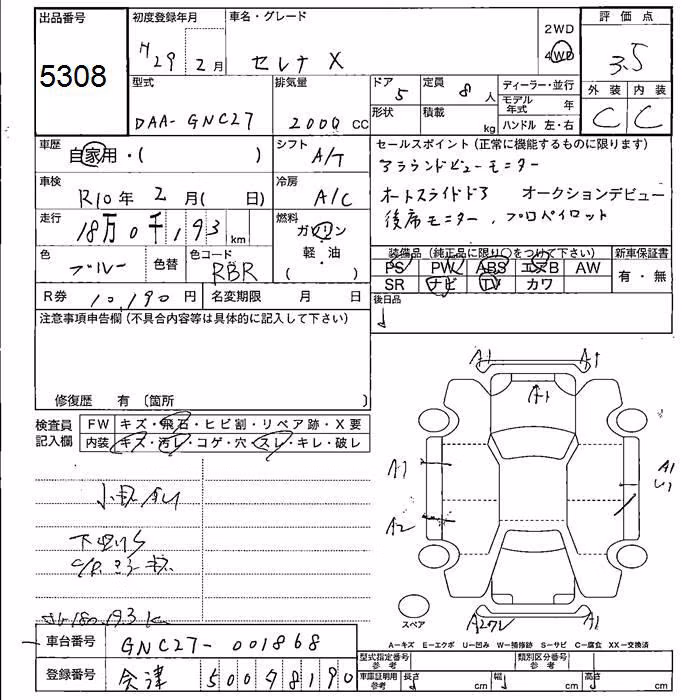 出品番号
5308
初度登録年月
H29年 2月
車名・グレード
セレナ X
2WD
4WD
評価点
3.5
外装 内装
C C
型式
DAA-GNC27
排気量
2000 CC
ドア
5
形状
定員
8人
積載
kg
ディーラー・並行
モデル年式 年
ハンドル 左・右
車歴
自家用・( )
シフト
A/T
セールスポイント (正常に機能するものに限ります)
アラウンドビューモニター
オートスライドドア オークションデビュー
後席モニター、プロパイロット
車検
R10年 2月( 日)
冷房
A/C
走行
18万0千193km
燃料
ガソリン
軽・油
( )
色
ブルー
色替
色コード
RBR
装備品 (純正品に限り○をつけて下さい)
PS PW ABS エアB AW
SR ナビ TV カワ
新車保証書
有・無
R券 10,190円
名変期限 月 日
後日品
注意事項申告欄 (不具合内容等は具体的に記入して下さい)
修復歴 有 〔箇所 〕
検査員記入欄
FW キズ・飛石・ヒビ割・リペア跡・X要
内装 キズ・汚レ・コゲ・穴・スレ・キレ・破レ
A1 A1
A1
A1
A2
A1
U1
スペア
A1
A-キズ E-エクボ U-凹み W-補修跡 S-サビ C-腐食 XX-交換済
車台番号 GNC27-001868
登録番号 会津 500 7 8190
型式指定番号 参考
類別区分番号 参考
車庫証明用 参考
長さ cm 幅 cm 高さ cm